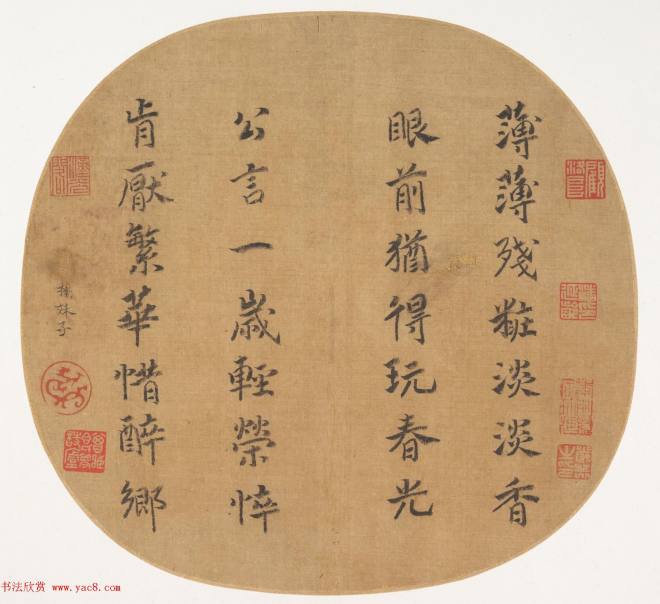 薄薄殘粧淡淡香
眼前猶得玩春光
公言一歲輕榮悴
肯厭繁華惜醉鄉
楊妹子
书法欣赏 www.yac8.com